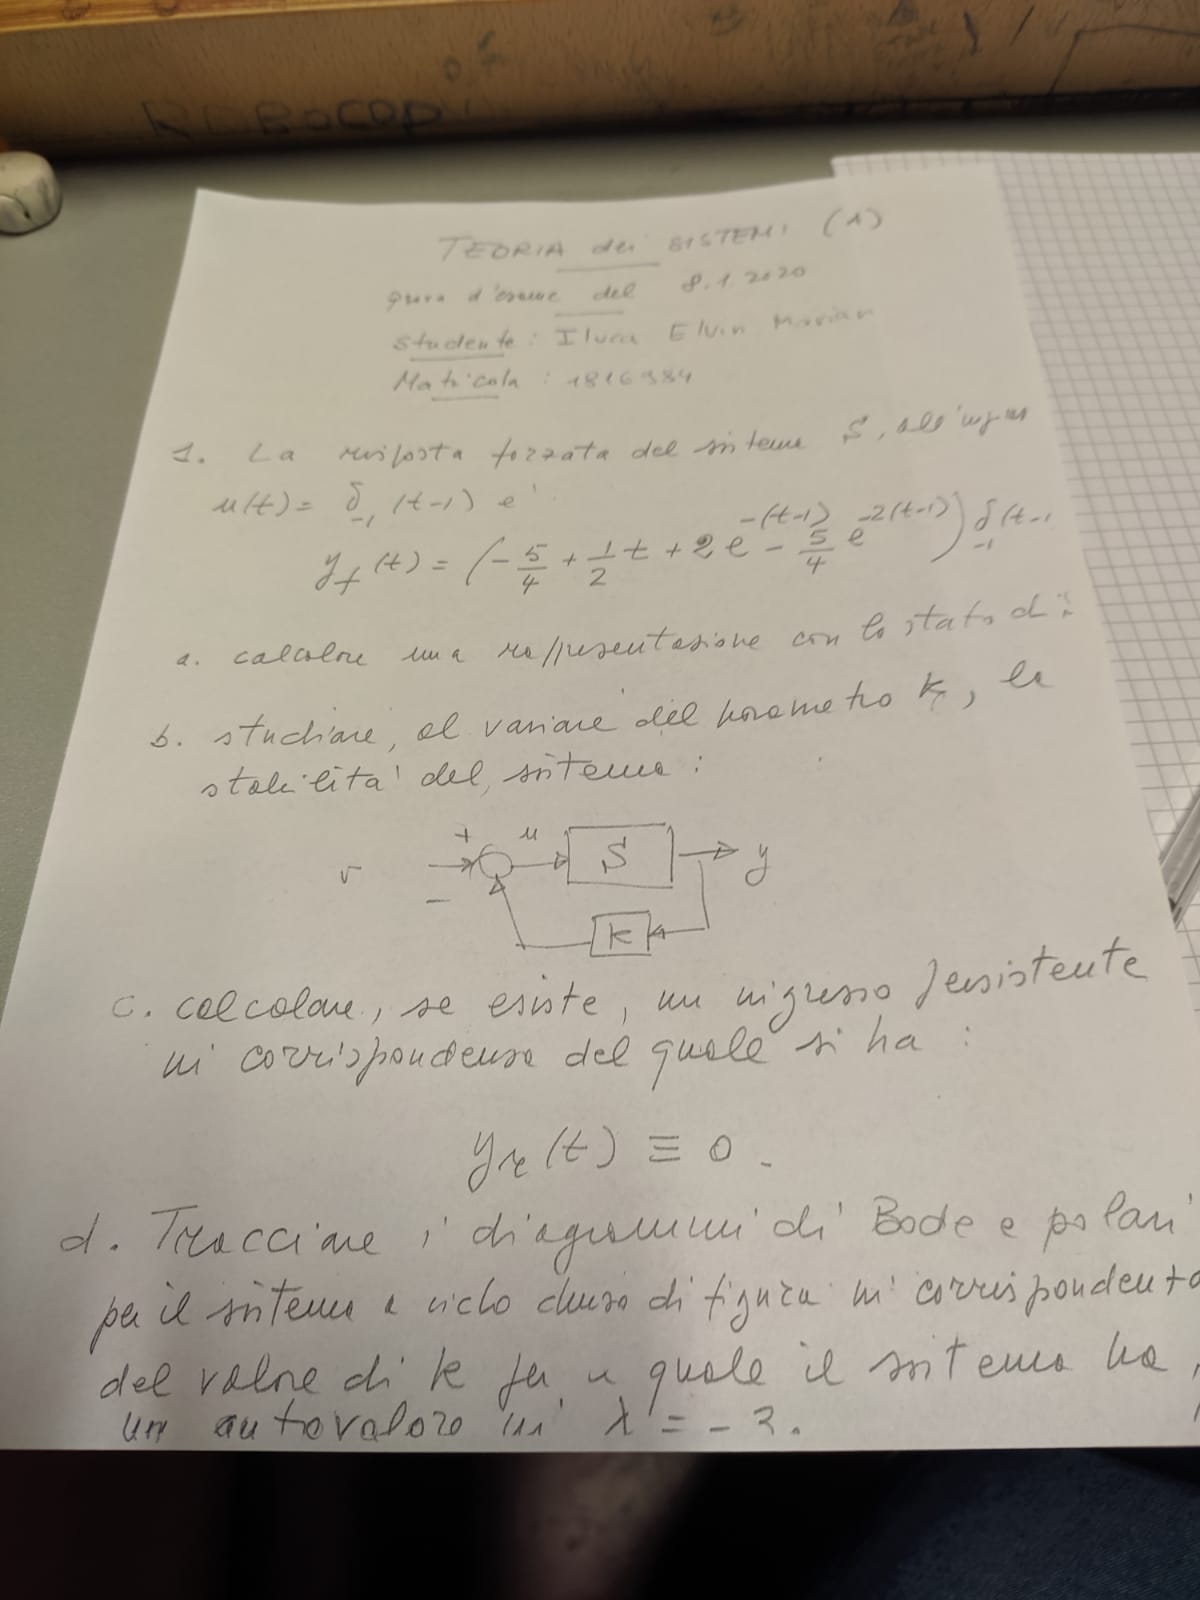 ROBOCOP
TEORIA dei SISTEMI (1)
prova d'esame del 8.1.2020
Studente: Elvin Marian
Matricola: 1816984
1. La risposta forzata del sistema S, all'ingres
u(t) = δ₋₁(t-1) e'
y_f(t) = (-5/4 + 1/2 t + 2e^{-(t-1)} - 5/4 e^{-2(t-1)}) δ₋₁(t-1
a. calcolare una rappresentazione con lo stato di:
b. studiare, al variare del parametro k, la
stabilita' del sistema:
+ u S y
r
- k
c. calcolare, se esiste, un ingresso persistente
in corrispondenza del quale si ha:
y_r(t) ≡ 0.
d. Tracciare i diagrammi di Bode e polari
per il sistema a ciclo chiuso di figura in corrispondenza
del valore di k per il quale il sistema ha
un autovalore in λ = -3.